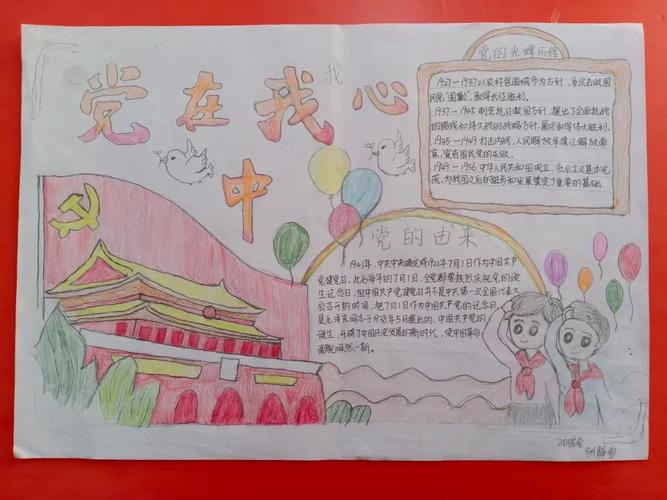 党在我心
中
党的光辉历程
1927—1937以农村包围城市为方针,多次击败国
民党"围剿",取得长征胜利。
1937—1945制定抗日救国方针,提出了全面抗战
的路线和持久战的战略方针,最终取得伟大胜利。
1945—1949打击内战,人民解放军渡江解放南
京,宣告国民党的失败。
1949—1956中华人民共和国成立,社会主义基本完
成,为我国之后的服务和发展奠定了重要的基础
党的由来
1941年,中共中央确定将1921年7月1日作为中国共产
党建党日,此后每年的7月1日,全党都要热烈庆祝党的诞
生纪念日,但中国共产党建党日并不是中共第一次全国代表大
会召开的时间,把7月1日作为中国共产党的纪念日,
是毛泽东同志于1938年5月提出的,中国共产党的
诞生,开辟了中国历史发展的新时代,使中国革命
面貌焕然一新。